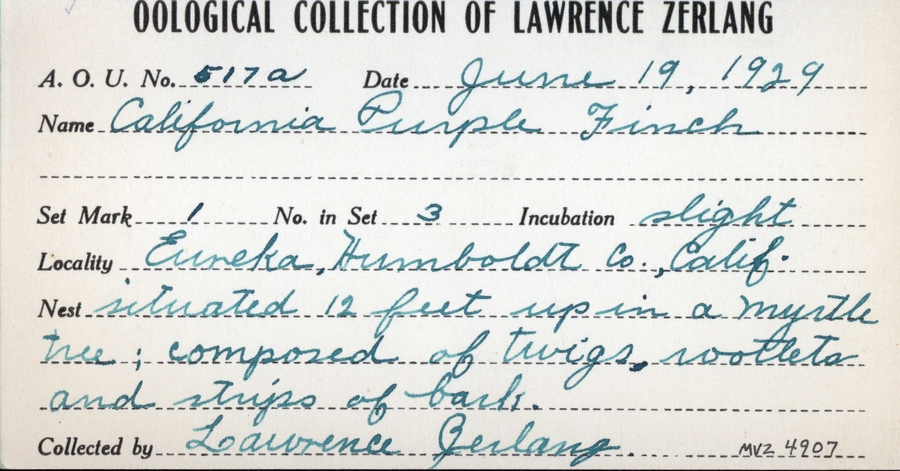 OOLOGICAL COLLECTION OF LAWRENCE ZERLANG
A. O. U. No. 517a Date June 19, 1929
Name California Purple Finch
Set Mark 1 No. in Set 3 Incubation slight
Locality Eureka, Humboldt Co., Calif.
Nest situated 12 feet up in a myrtle
tree; composed of twigs, rootlets
and strips of bark.
Collected by Lawrence Zerlang.
MVZ 4907